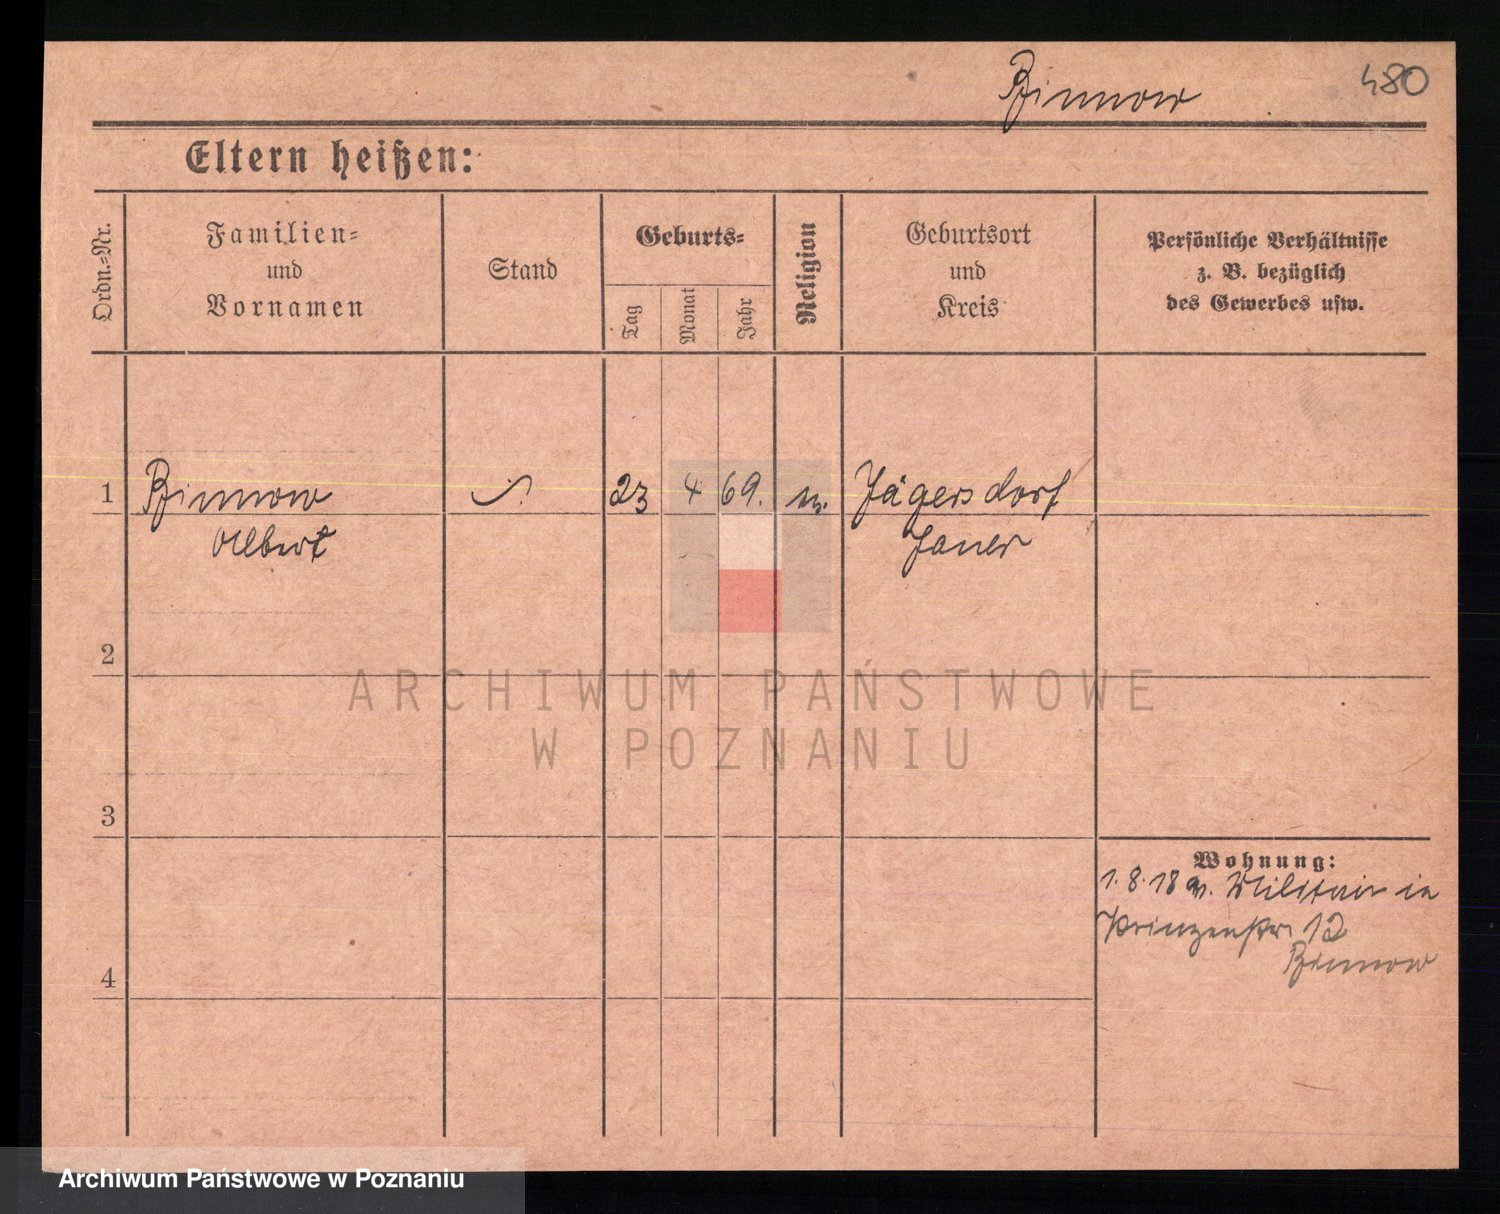 Binnow
480
Eltern heißen:
Ordn.-Nr.
Familien-
und
Vornamen
Stand
Geburts-
Tag
Monat
Jahr
Religion
Geburtsort
und
Kreis
Persönliche Verhältnisse
z. B. bezüglich
des Gewerbes usw.
1 Binnow 23 4 69. Jägersdorf
Albert Jauer
2
3
4
Wohnung:
1. 8. 18 v. Militair in
Prinzenstr 12
Binnow
ARCHIWUM PAŃSTWOWE
W POZNANIU
Archiwum Państwowe w Poznaniu